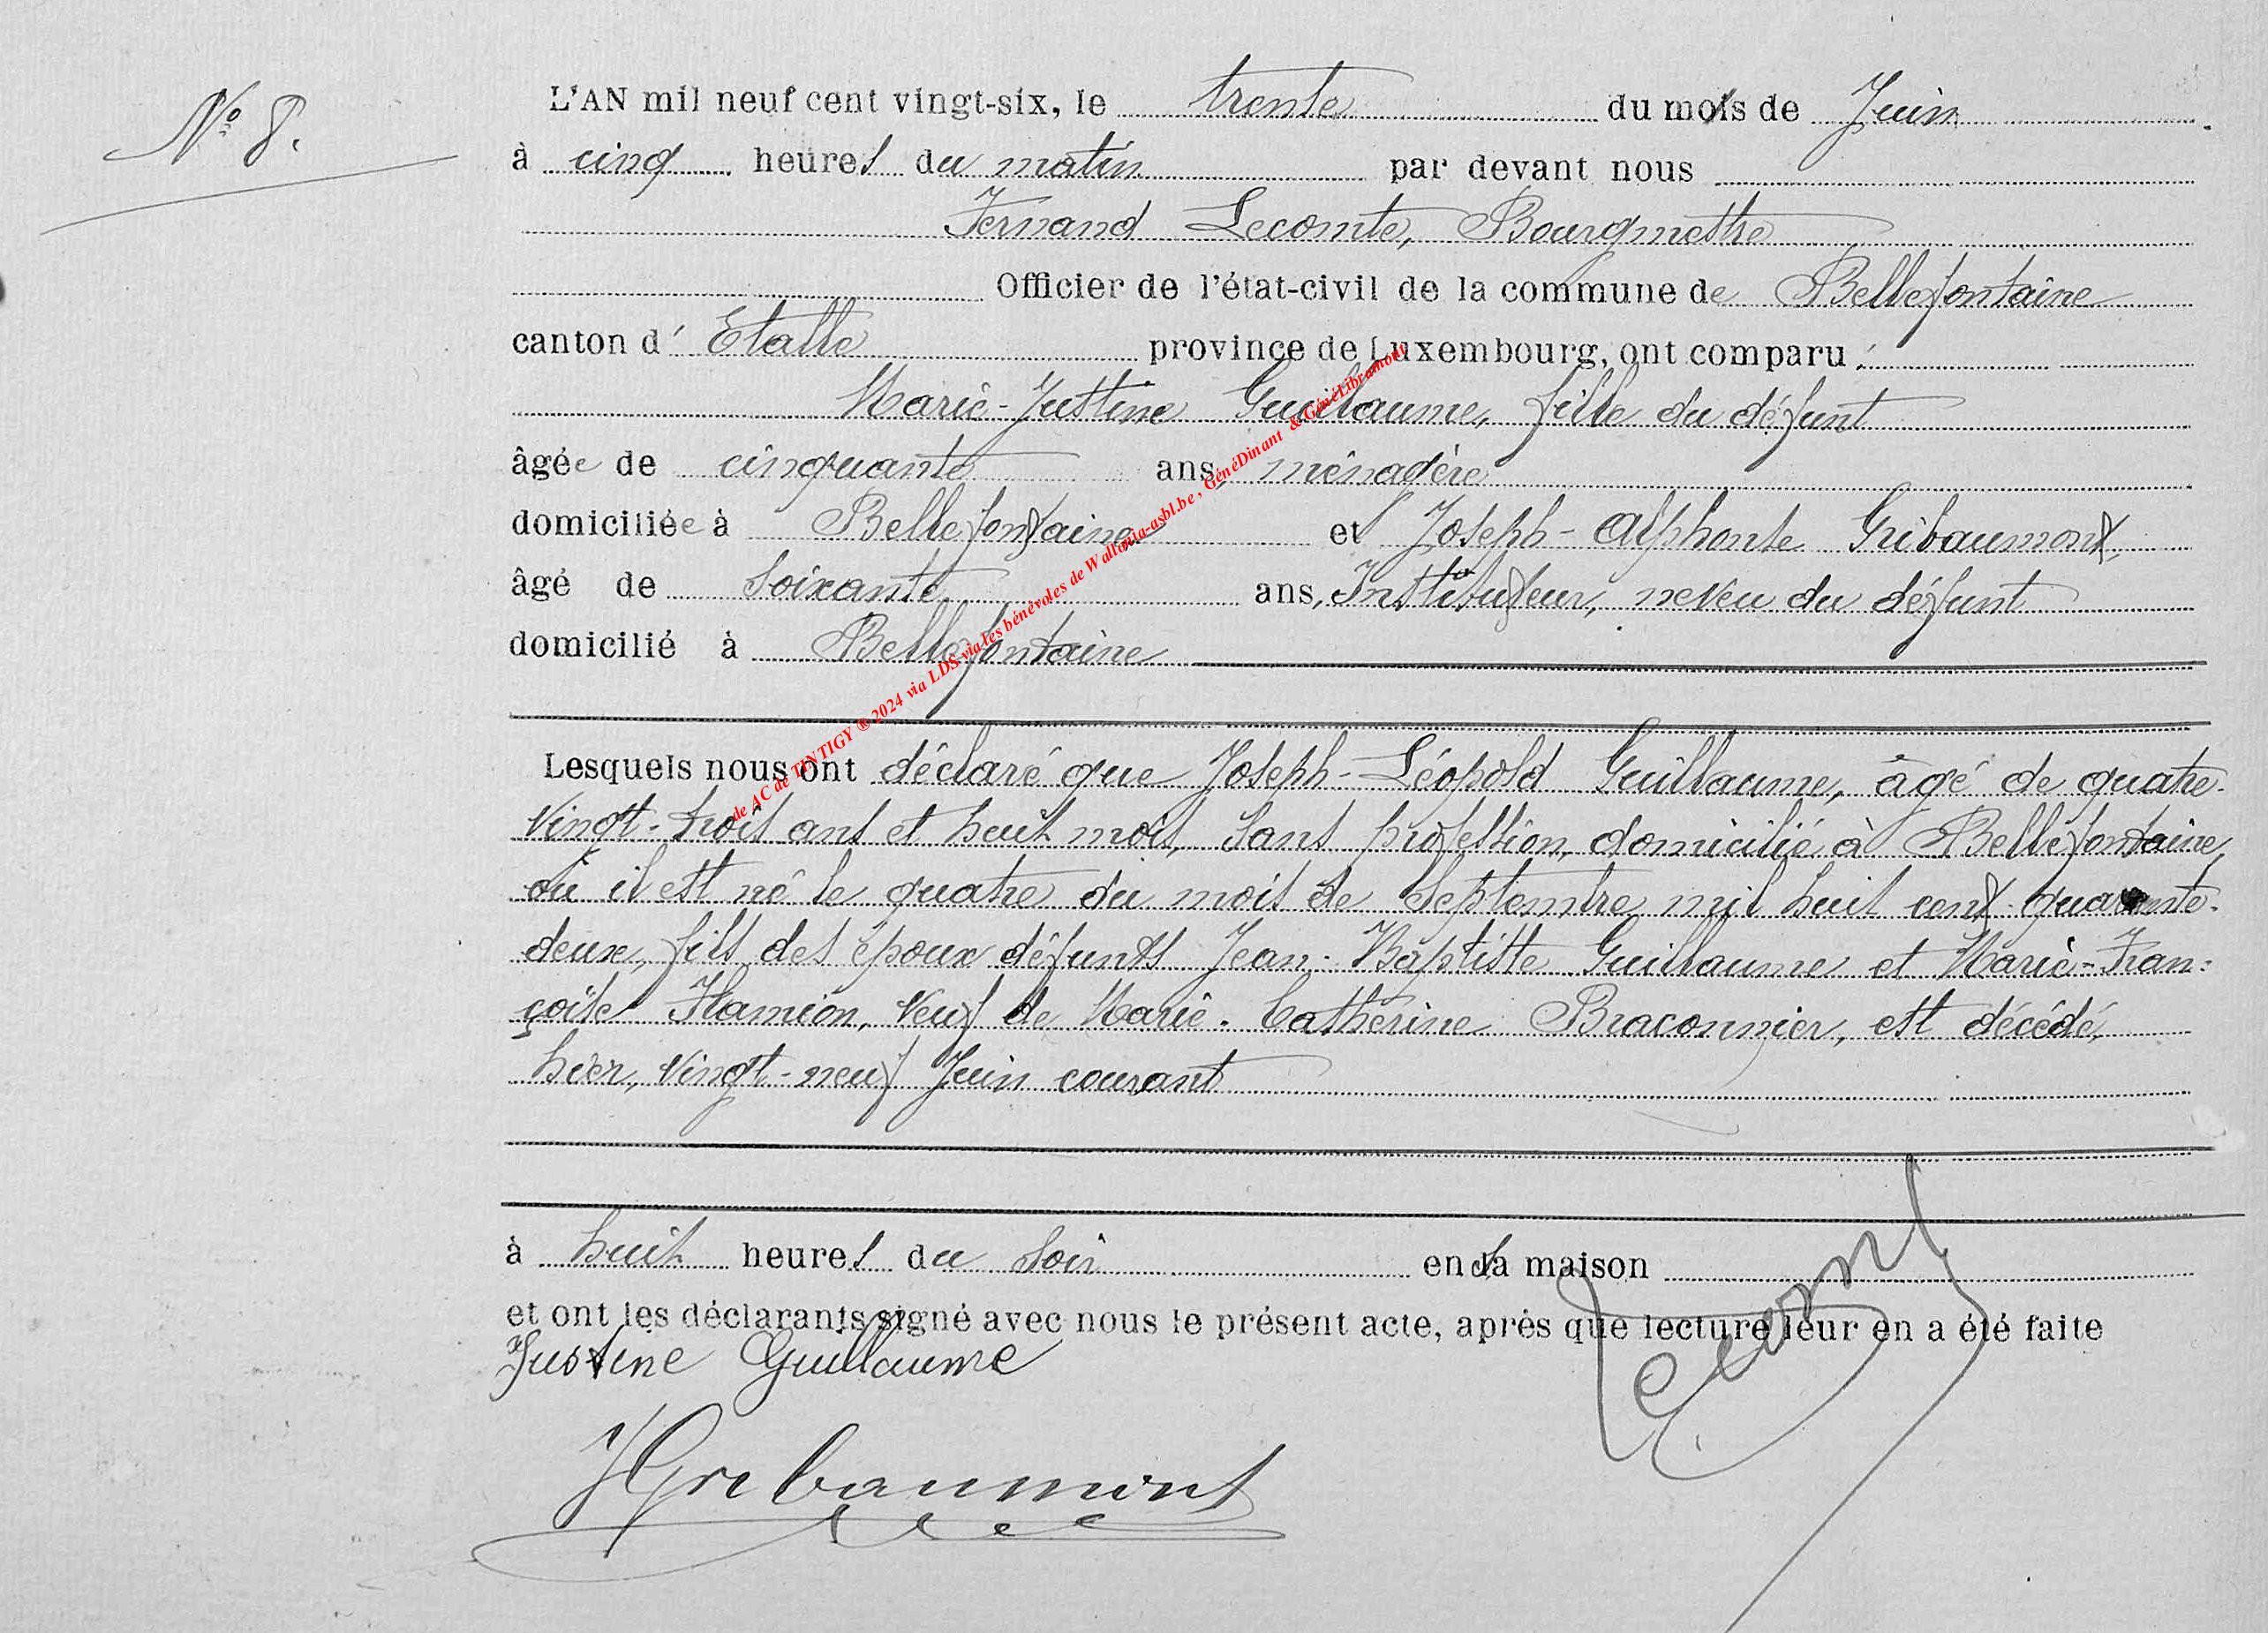 N° 8.
L'AN mil neuf cent vingt-six, le trente du mois de Juin
à cinq heures du matin par devant nous
Fernand Lecomte, Bourgmestre
Officier de l'état-civil de la commune de Bellefontaine
canton d' Etalle province de Luxembourg, ont comparu :
Marie-Justine Guillaume, fille du défunt
âgée de cinquante ans, ménagère
domiciliée à Bellefontaine et Joseph-Alphonse Gribaumont,
âgé de soixante ans, Instituteur, neveu du défunt
domicilié à Bellefontaine
Lesquels nous ont déclaré que Joseph-Léopold Guillaume, âgé de quatre-
vingt-trois ans et huit mois, sans profession, domicilié à Bellefontaine,
où il est né le quatre du mois de Septembre mil huit cent quarante-
deux, fils des époux défunts Jean-Baptiste Guillaume et Marie-Fran-
çoise Flamion, veuf de Marie-Catherine Braconnier, est décédé,
hier, vingt-neuf Juin courant
à huit heures du soir en sa maison
et ont les déclarants signé avec nous le présent acte, après que lecture leur en a été faite
Justine Guillaume
JGribaumont
Lecomte
de AC de TINTIGY ® 2024 via LDS via les bénévoles de Wallonia-asbl.be , GénéDinant & GénéLibramont